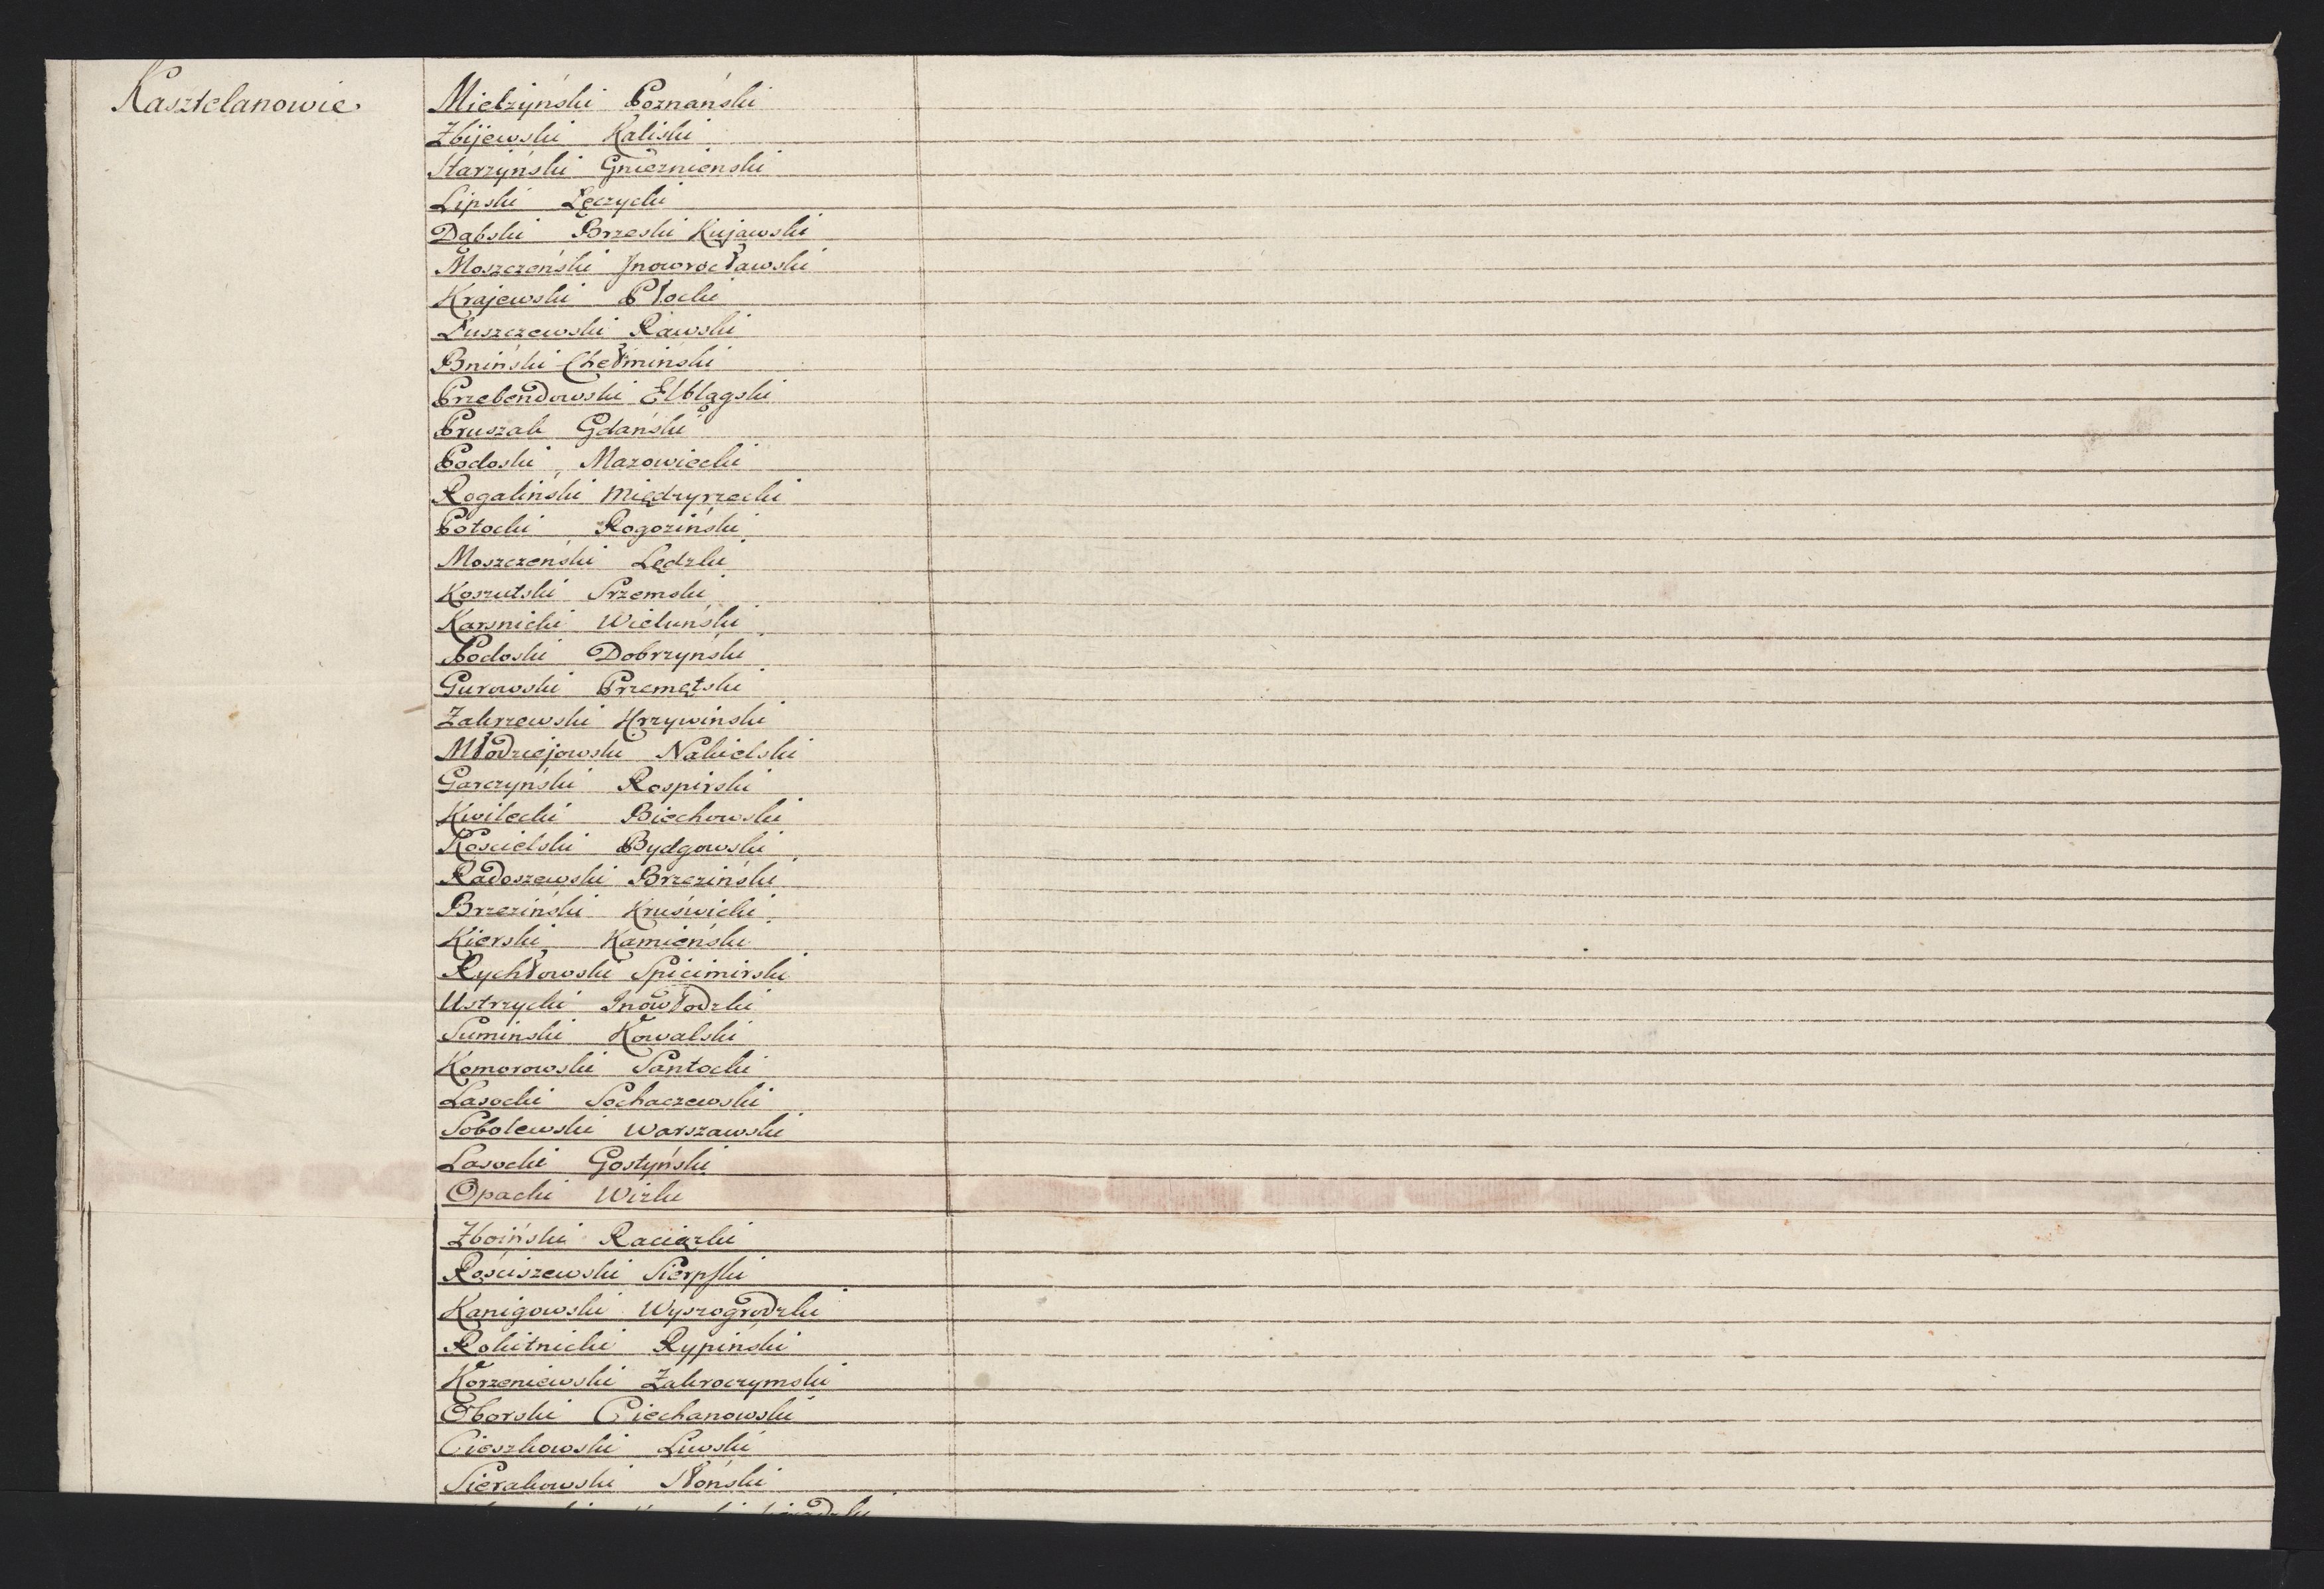 Kasztelanowie
Mielżyński Poznański
Zbijewski Kaliski
Starzyński Gnieznienski
Lipski Łęczycki
Dąbski Brzeski Kujawski
Moszczeński Jnowrocławski
Krajewski Płocki
Łuszczewski Rawski
Bniński Chełmiński
Przebendowski Elblągski
Pruszak Gdański
Podoski Mazowiecki
Rogaliński Międzyrzecki
Potocki Rogoziński
Moszczeński Lędzki
Koszutski Srzemski
Karsnicki Wieluński
Podoski Dobrzyński
Gurowski Przemętski
Zakrzewski Krzywinski
Młodziejowski Nakielski
Garczyński Rospirski
Kwilecki Biechowski
Kościelski Bydgowski
Radoszewski Brzeziński
Brzeziński Kruświcki
Kierski Kamieński
Rychłowski Spicimirski
Ustrzycki Inowłodzki
Suminski Kowalski
Komorowski Santocki
Lasocki Sochaczewski
Sobolewski Warszawski
Lasocki Gostyński
Opacki Wizki
Zboiński Raciązki
Rościszewski Sierpski
Kanigowski Wyszogrodzki
Rokitnicki Rypinski
Korzeniewski Zakroczymski
Oborski Ciechanowski
Cieszkowski Liwski
Sierakowski Słoński